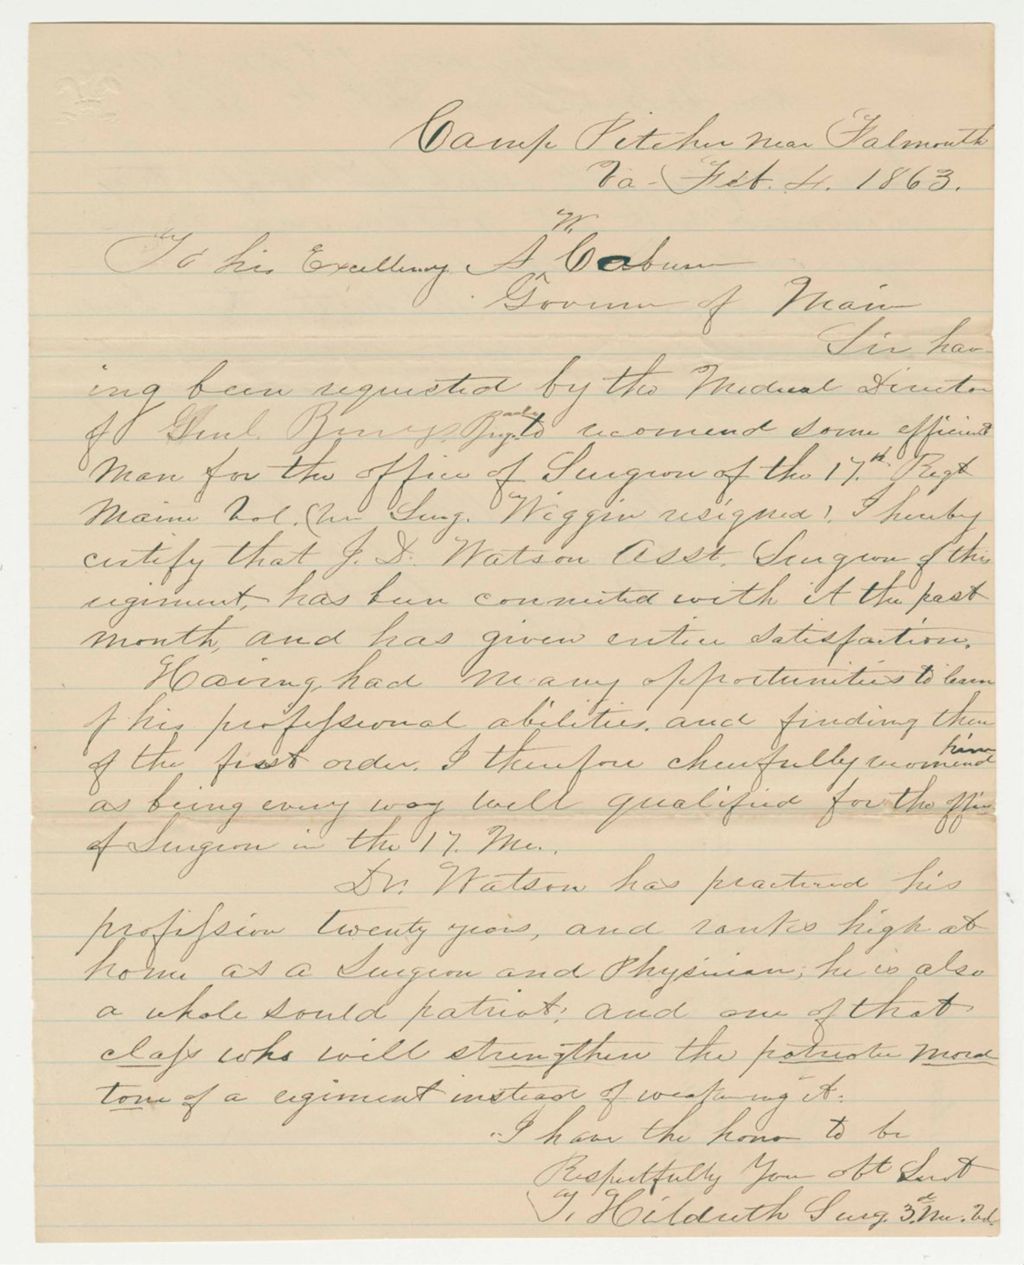 Camp Pitcher near Falmouth
Va. Feb. 4. 1863.
W.
To his Excellency A Coburn
Governor of Maine
Sir hav-
ing been requested by the Medical Director
of Genl. Berrys to recomend some efficient
man for the office of Surgeon of the 17.th Regt
Maine Vol. Surg. Wiggin resigned, I hereby
certify that J. D. Watson Asst. Surgeon of this
regiment, has been connected with it the past
month, and has given entire satisfaction.
Having had many opportunities to learn
of his professional abilities, and finding them
of the first order, I therefore cheerfully recomend him
as being every way well qualified for the office
of Surgeon in the 17. Me.
Dr. Watson has practiced his
profession twenty years, and ranks high at
home as a Surgeon and Physician; he is also
a whole sould patriot; and one of that
class who will strengthen the patriotic moral
tone of a regiment instead of weakening it.
I have the honor to be
Respectfully Your obt Servt
T. Hildreth Surg. 3.d Me. Vol.